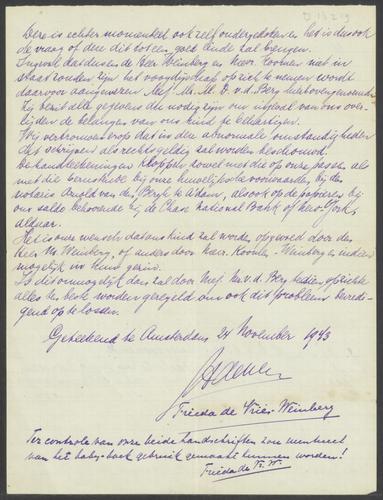 Deze is echter momenteel ook zelf ondergedoken en het is dus ook
de vraag of deze dit tot een goed einde zal brengen.
Ingeval dat dus en de Heer Weinberg en Mevr. Kooiman niet in
staat zouden zijn het voogdijschap op zich te nemen wordt
daarvoor aangewezen Mej. M. M. D. v.d. Berg hierboven genoemd
Zij bezit alle gegevens die nodig zijn om ingeval van ons over-
lijden de belangen van ons kind te behartigen.
Wij vertrouwen erop dat in deze abnormale omstandigheden
dit schrijven als rechtsgeldig zal worden beschouwd.
De handtekeningen kloppen zowel met die op onze passen, als
met die berustende bij onze huwelijksvoorwaarden, bij den
notaris Arnold van den Bergh te A'dam, alsook op de papieren bij
ons saldo behorende bij de Chase National Bank of New-York,
aldaar.
Het is onze wensch dat ons kind zal worden opgevoed door den
Heer M. Weinberg, of anders door Mevr. Kooiman-Weinberg en indien
mogelijk in hun gezin.
Is dit onmogelijk dan zal door Mej. M. v.d. Berg bedien opzichte
alles ten beste worden geregeld om ook dit probleem bevredi-
gend op te lossen.
Geteekend te Amsterdam 24 November 1943
Frieda de Vries-Weinberg
Ter controle van onze beide handschriften zou eventueel
van het baby-boek gebruik gemaakt kunnen worden!
Frieda de Vr. W.